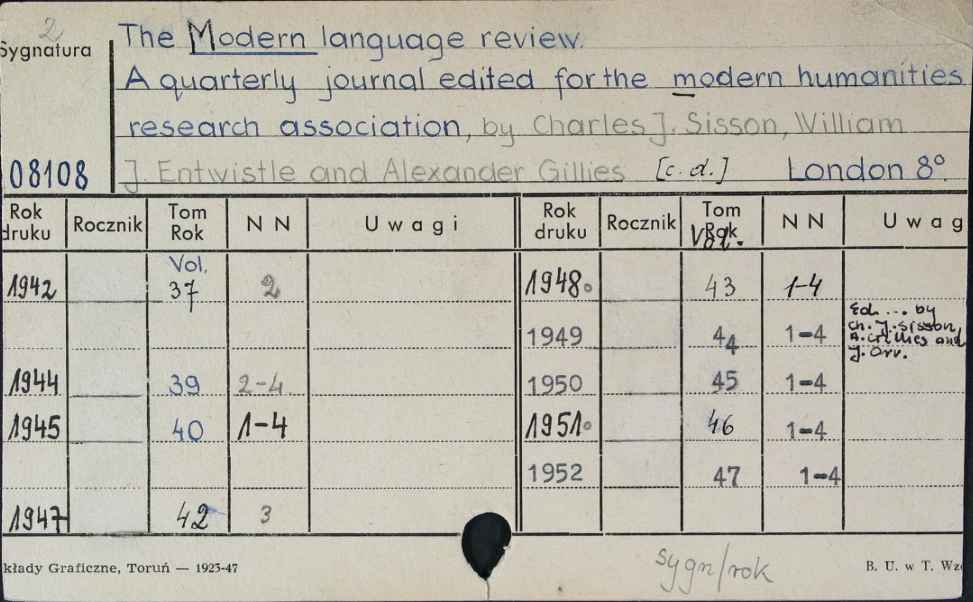 2
Sygnatura
The Modern language review.
A quarterly journal edited for the modern humanities
research association, by Charles J. Sisson, William
08108 J. Entwistle and Alexander Gillies [c.d.] London 8°.
Rok druku Rocznik Tom Rok N N Uwagi Rok druku Rocznik Tom Rok Vol. N N Uwag
Vol.
1942 37 2 1948. 43 1-4
1949 44 1-4 Ed... by
Ch. J. Sisson,
A. Gillies and
J. Orr.
1944 39 2-4 1950 45 1-4
1945 40 1-4 1951. 46 1-4
1952 47 1-4
1947 42 3
kłady Graficzne, Toruń — 1923-47 sygn/rok B. U. w T. Wz